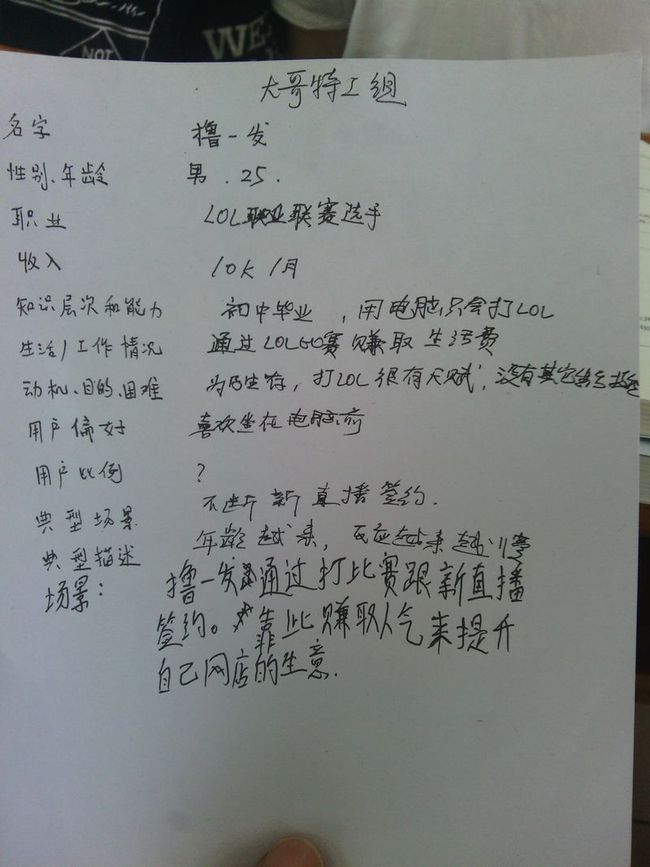 NOT
WE
大哥特工组
名字 撸一发
性别、年龄 男 . 25 .
职业 LOL职业联赛选手
收入 10K 1月
知识层次和能力 初中毕业 , 用电脑只会打LOL
生活/工作情况 通过LOLGO赛赚取生活费
动机、目的、困难 为了生存, 打LOL很有天赋, 没有其它
用户偏好 喜欢坐在电脑前
用户比例 ?
典型场景 不断新直播签约.
典型描述 年龄越来, 反应越来越
场景: 撸一发通过打比赛跟新直播
签约。靠此赚取人气来提升
自己网店的生意.